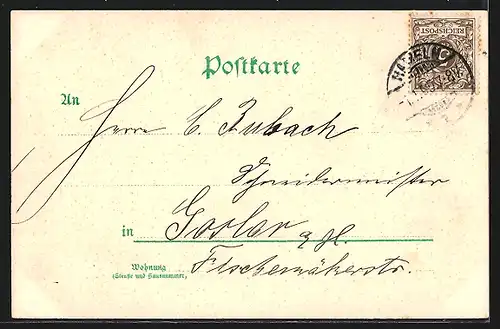 REICHSPOST
HAMELN
Postkarte
An
Herrn C. Zubach
Schneidermeister
in Goslar a. H.
Fischemäkerstr.
Wohnung
(Straße und Hausnummer)